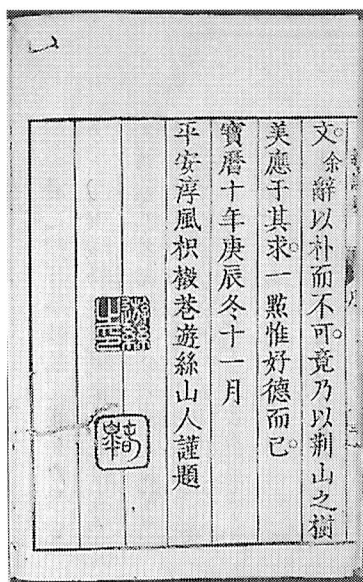 文。余辭以朴而不可。竟乃以荊山之樹
美應于其求。一㸃惟好德而已。
寶曆十年庚辰冬十一月
平安淳風枳椒巷遊絲山人謹題